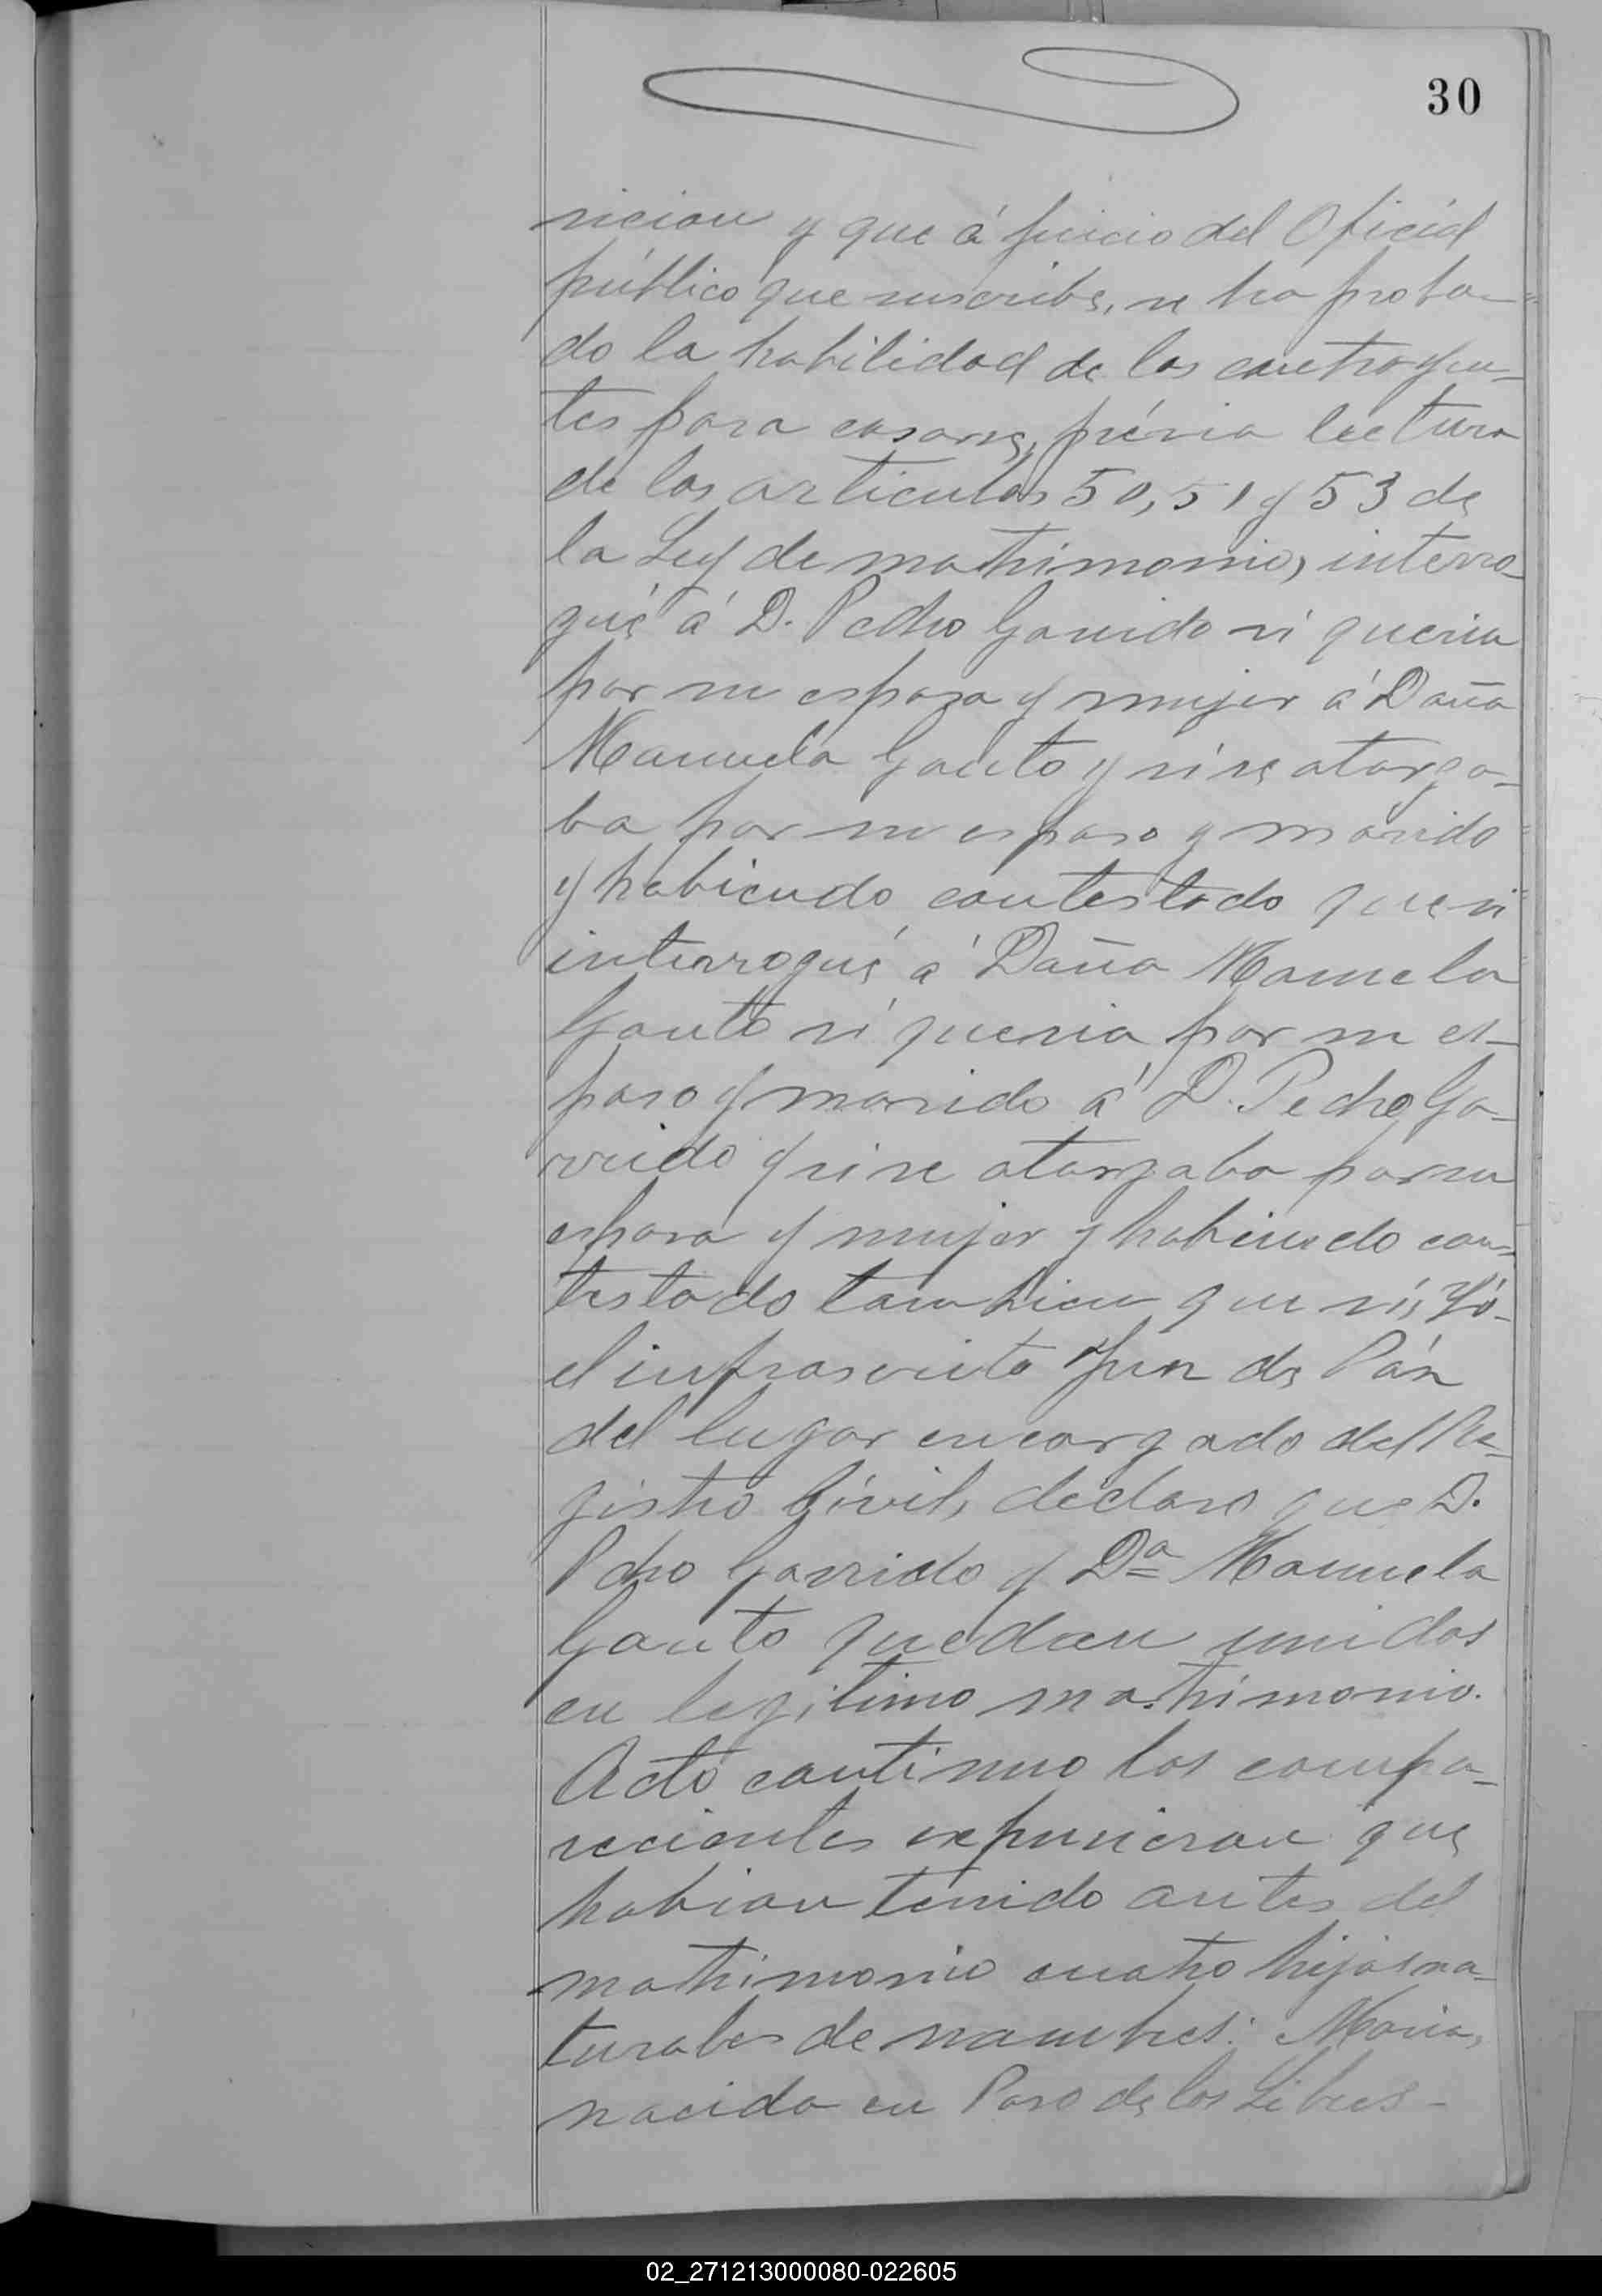 30
sicion y que á juicio del Oficial
público que suscribe, se ha proba-
do la habilidad de los contrayen-
tes para casarse, prévia lectura
de los articulos 50, 51 y 53 de
la Ley de matrimonio, interro-
gué á D. Pedro Garrido si queria
por su esposa y mujer á Doña
Manuela Gauto y si se otorga-
ba por su esposo y marido
y habiendo contestado que si
interrogué á Doña Manuela
Gauto si queria por su es-
poso y marido á D. Pedro Ga-
rrido y si se otorgaba por su
esposa y mujer y habiendo con-
testado tambien que si; Yó-
el infrascrito Juez de Páz
del lugar encargado del Re-
gistro Civil, declaro que D.
Pdro Garrido y Dª Manuela
Gauto quedan unidos
en legitimo matrimonio.
Acto continuo los compa-
recientes expusieron que
habian tenido antes del
matrimonio cuatro hijos na-
turales de nombres: Maria,
nacida en Paso de los Libres-
02_271213000080-022605